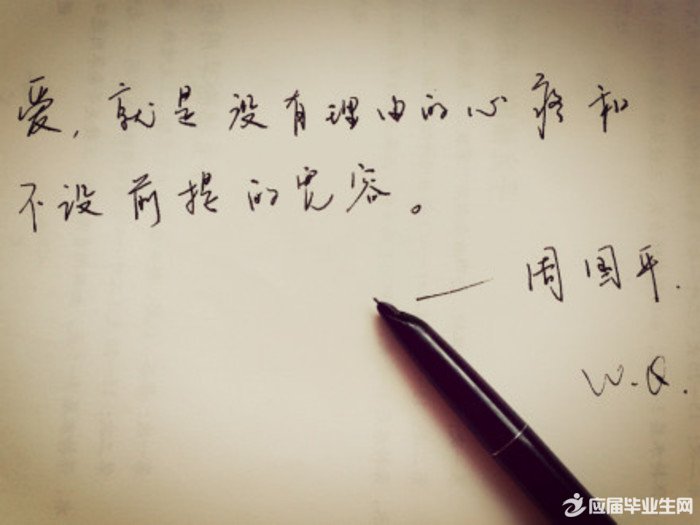 爱,就是没有理由的心疼和
不设前提的宽容。
——周国平.
W.Q.
应届毕业生网